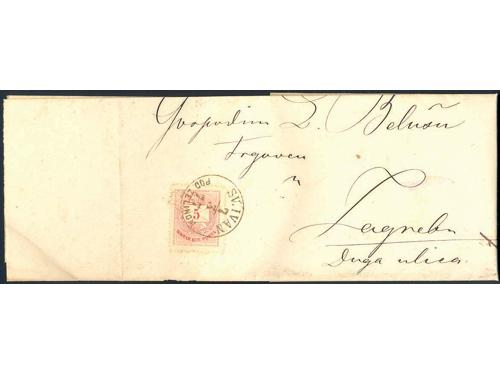 Gospodinu L. Belušu
Trgovcu
u
Zagrebu
Duga ulica
SV. IVAN
POD
5